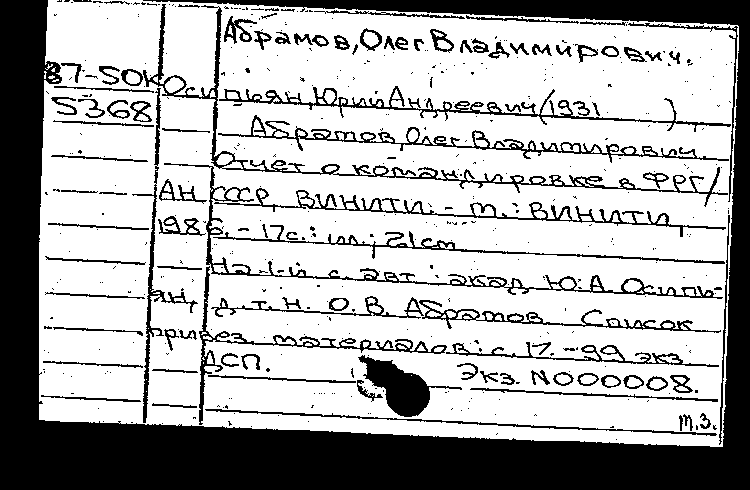 Абрамов, Олег Владимирович.
87-50K Осипьян, Юрий Андреевич (1931 )
5368
Абрамов, Олег Владимирович.
Отчет о командировке в ФРГ/
АН СССР, ВИНИТИ. - М.: ВИНИТИ,
1986. - 17с.: ил.; 21cm
На 1-й с. авт.: акад. Ю.А. Осипь-
ян, д.т.н. О.В. Абрамов Список
привез. материалов: с. 17. - 99 экз
ДСП. Экз. N000008.
т.з.